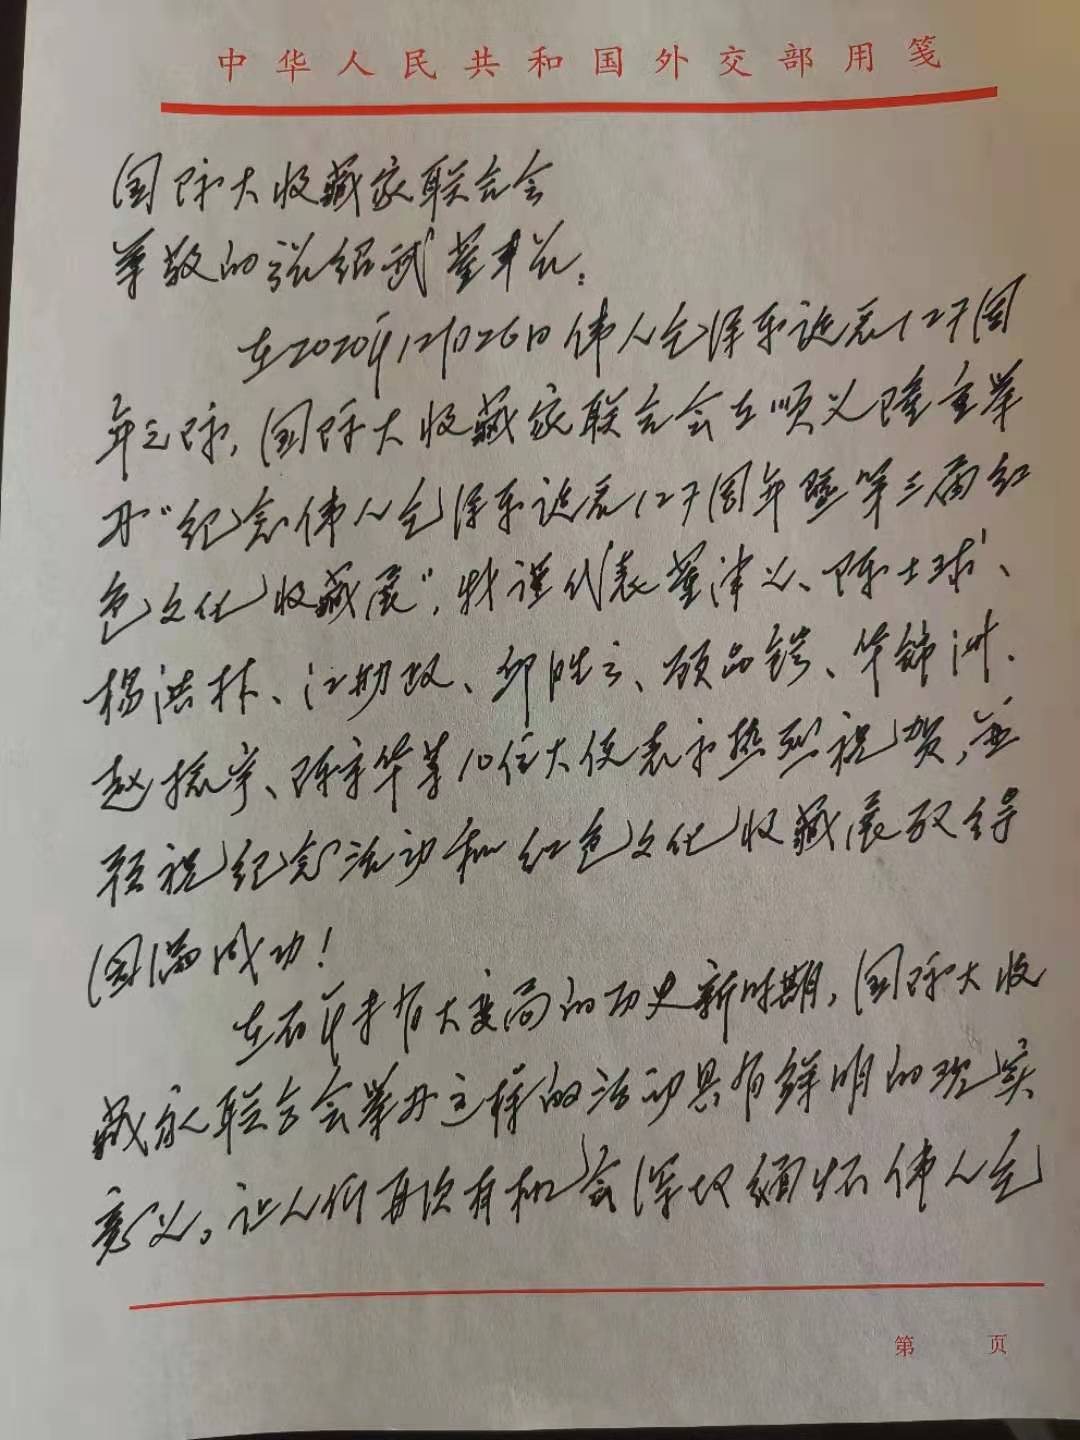 中华人民共和国外交部用笺
国际大收藏家联合会
尊敬的张绍武董事长：
在2020年12月26日伟人毛泽东诞辰127周
年之际，国际大收藏家联合会在顺义隆重举
办“纪念伟人毛泽东诞辰127周年暨第三届红
色文化收藏展”，我谨代表董津义、陈士球、
杨洪林、江勤政、邱胜云、顾品锷、华锦洲、
赵振宇、陈京华等10位大使表示热烈祝贺，并
预祝纪念活动和红色文化收藏展取得
圆满成功！
在百年未有大变局的历史新时期，国际大收
藏家联合会举办这样的活动具有鲜明的现实
意义。让人们再次有机会深切缅怀伟人毛
第 页